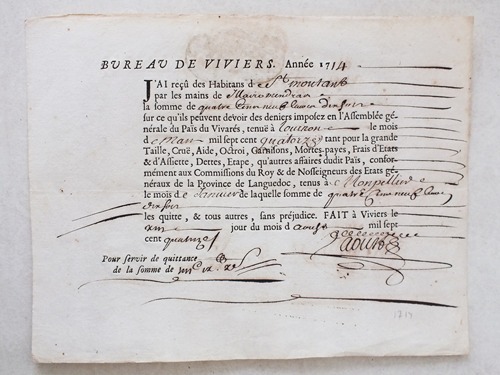 BUREAU DE VIVIERS. Année 1714
J'AI reçû des Habitans de St
par les mains de
la somme de quatre Cens neuf Livres dix sols
sur ce qu'ils peuvent devoir des deniers imposez en l'Assemblée géné-
nérale du Païs du Vivarés, tenuë à Tournon le mois
de Mars mil sept quatorze tant pour la grande
Taille, Cruë, Aide, Octroi, Garnisons, Mortes-payes, Frais d'Etats
& d'Assiette, Dettes, Etape, qu'autres affaires dudit Païs, confor-
mément aux Commissions du Roy & de Nosseigneurs des Etats gé-
néraux de la Province de Languedoc, tenus à Montpellier
le mois de Janvier de laquelle somme de quatre Cens neuf Livres
dix sols
les quitte, & tous autres, sans préjudice. FAIT à Viviers le
jour du mois d'aoust mil sept
cent quatorze
Pour servir de quittance
de la somme de
1714